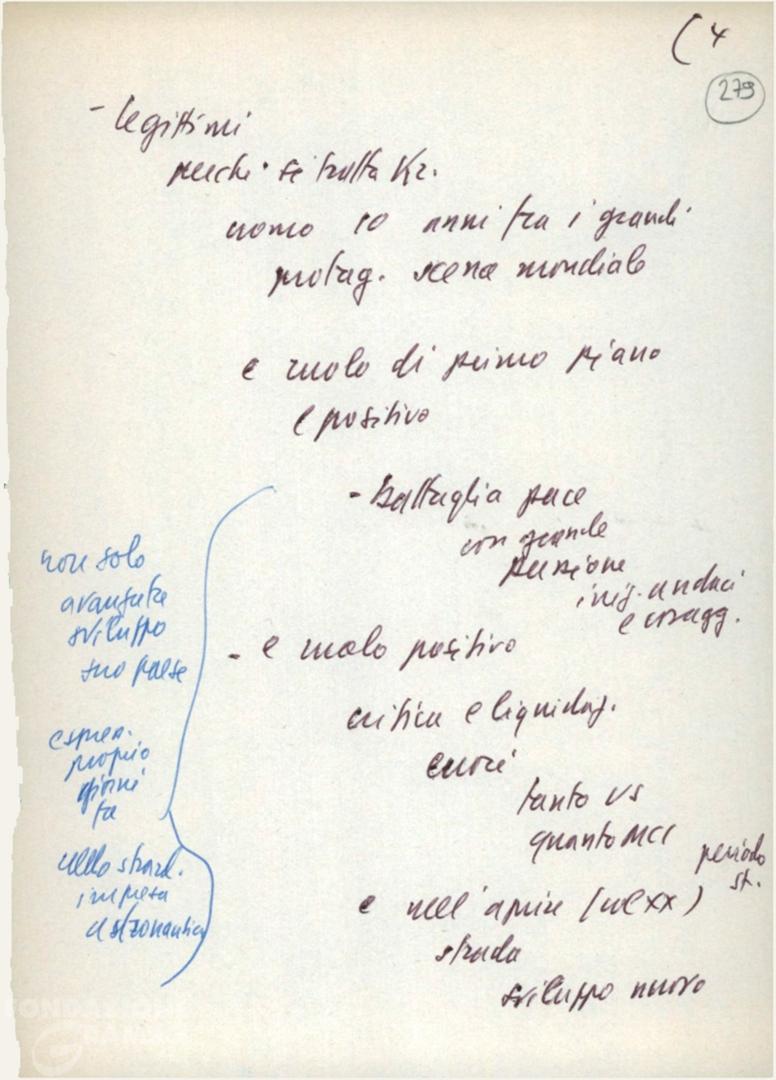 (4
279
- legittimi
perché si tratta Kr.
uomo 10 anni tra i grandi
protag. scena mondiale
e ruolo di primo piano
e positivo
- battaglia pace
con grande
passione
iniz. audaci
e coragg.
- e ruolo positivo
critica e liquidaz.
errori
tanto US
quanto MCI
periodo
st.
e nell'aprire (nel XX)
strada
sviluppo nuovo
non solo
avanzata
sviluppo
suo paese
espres.
proprio
giorni
fa
nello straord.
impresa
astronautica
FONDAZIONE
GRAMSCI